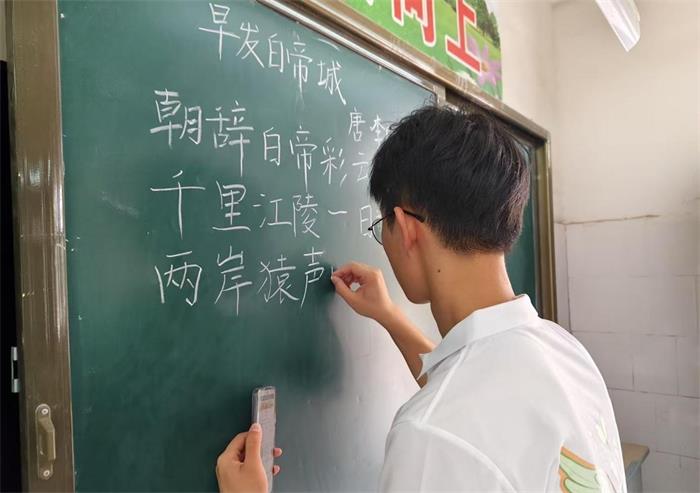 向上
早发白帝城
唐 李
朝辞白帝彩云
千里江陵一日
两岸猿声